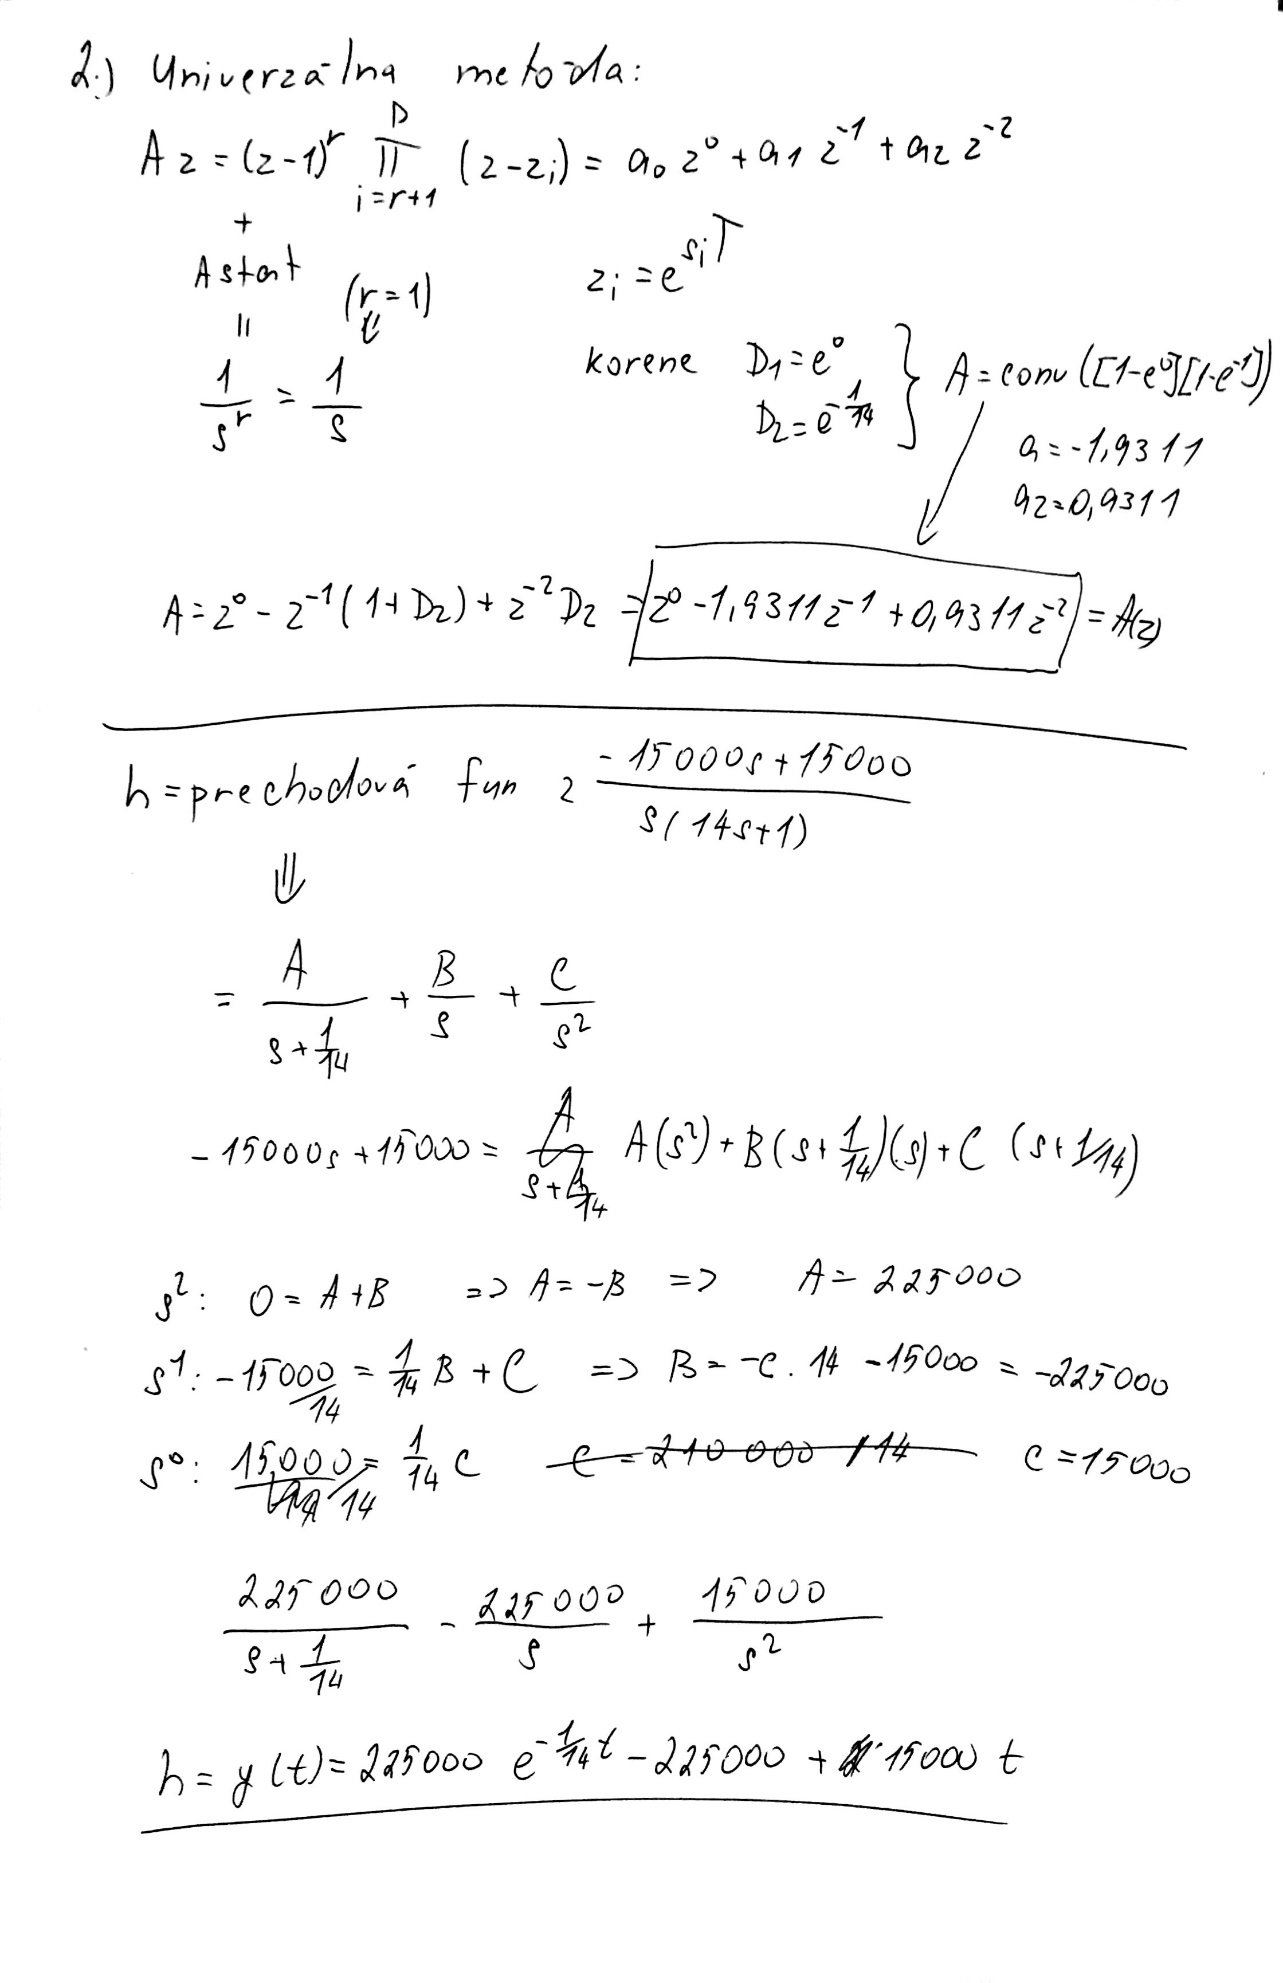 2.) Univerzálna metóda:
A z = (z-1)^r ∏_{i=r+1}^{D} (z-z_i) = a_0 z^0 + a_1 z^-1 + a_2 z^-2
+
A start (r=1)
z_i = e^{s_i T}
1/s^r = 1/s
korene D_1 = e^0
D_2 = e^{-1/14}
} A = conv([1-e^0][1-e^-1])
a = -1,9311
a2 = 0,9311
A = z^0 - z^-1 (1+D_2) + z^-2 D_2 = z^0 - 1,9311 z^-1 + 0,9311 z^-2 = A(z)
h = prechodová fun z (-15000s + 15000)/(s(14s+1))
⇓
= A/(s+1/14) + B/s + C/s^2
-15000s + 15000 = A(s^2) + B(s+1/14)(s) + C (s+1/14)
s^2: 0 = A+B => A = -B => A = 225000
s^1: -15000/14 = 1/14 B + C => B = -C . 14 - 15000 = -225000
s^0: 15000/14 = 1/14 C C = 210 000 / 14 C = 15000
225000/(s+1/14) - 225000/s + 15000/s^2
h = y(t) = 225000 e^{-1/14 t} - 225000 + 15000 t